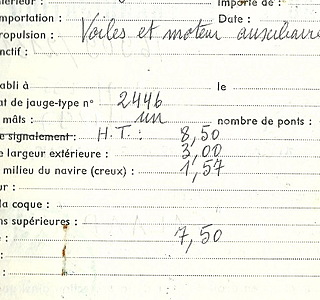 Importé de :
mportation : Date :
ropulsion : Voiles et moteur auxiliaire
nctif :
abli à le
at de jauge-type n° 2446
mâts : un nombre de ponts :
e signalement : H.T. : 8,50
e largeur extérieure : 3,00
milieu du navire (creux) : 1,57
ur :
la coque :
ns supérieures :
: 7,50
:
: